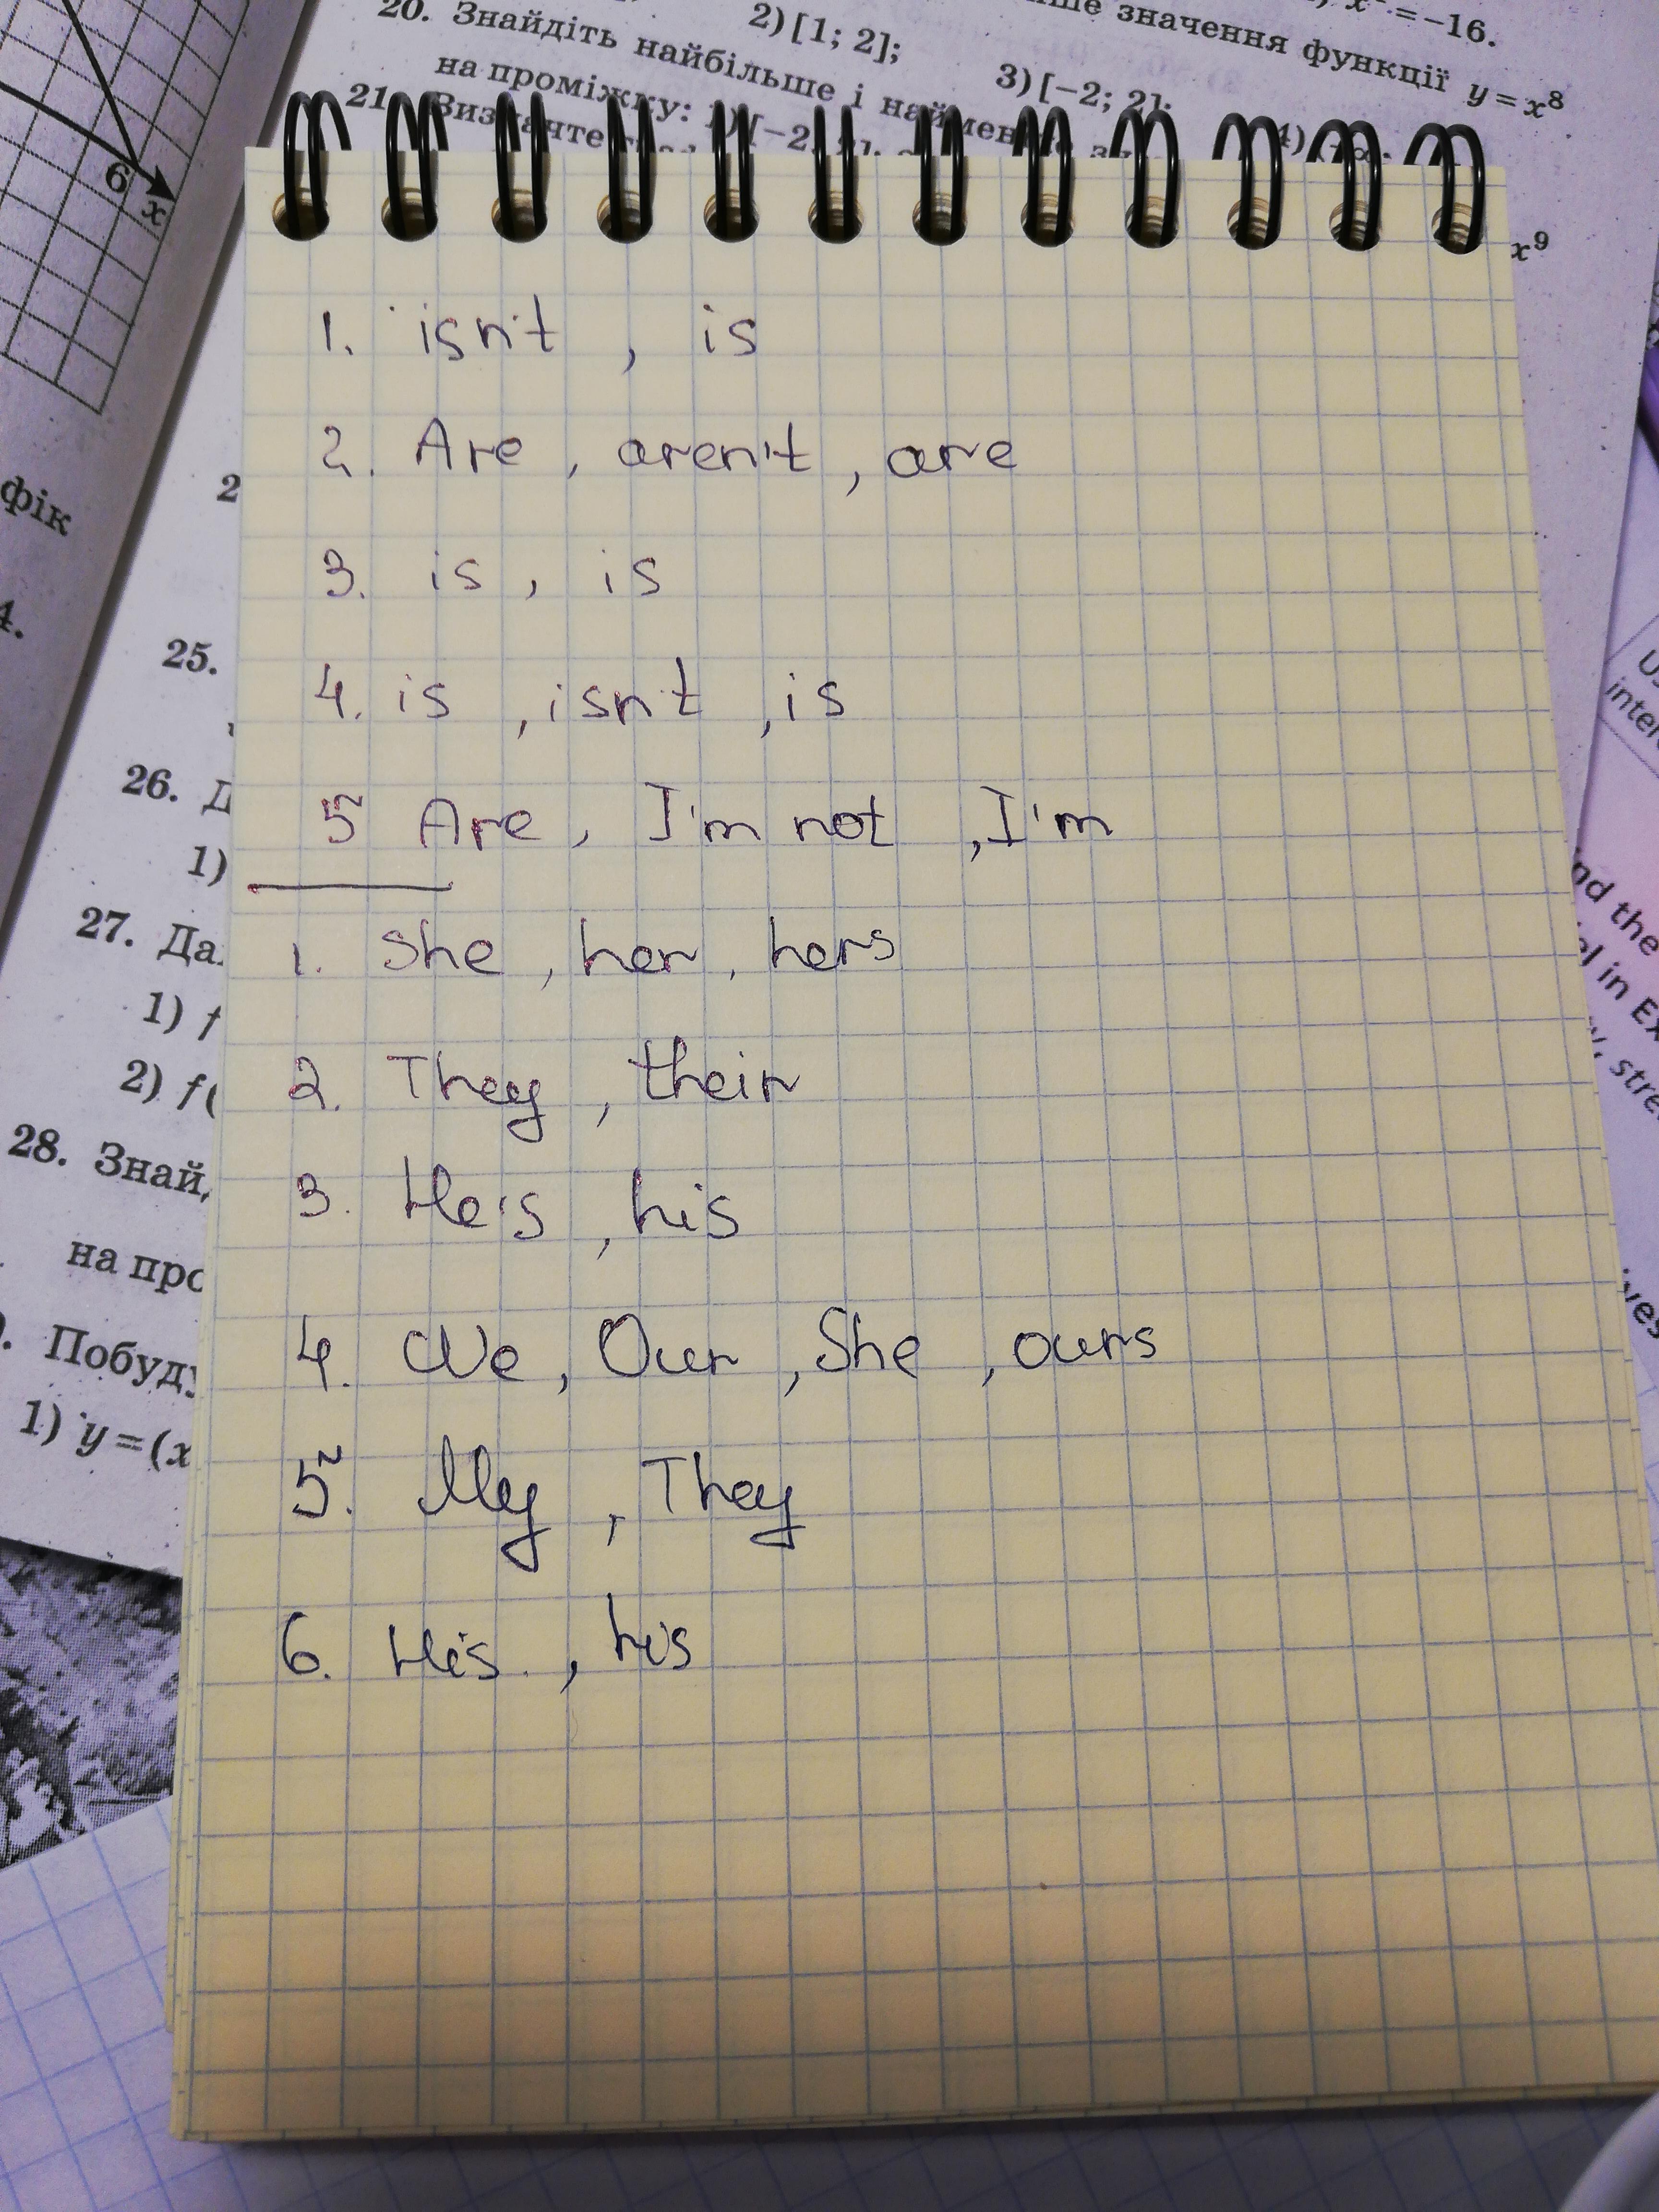 x = -16.
20. Знайдіть найбільше і найменше значення функції y = x⁸
на проміжку: 1) [-2; 2];
2) [1; 2];
3) [-2; 2];
4)
21.
x⁹
6
x
фік
4.
2
25.
26. Д
1)
27. Да
1) f
2) f(
28. Знай
на про
Побуду
1) y = (x
1. isn't , is
2. Are , aren't , are
3. is , is
4. is , isn't , is
5 Are , I'm not , I'm
1. She , her , hers
2. They , their
3. He's , his
4. We , Our , She , ours
5. My , They
6. His , his
nd the
in Ex
stre